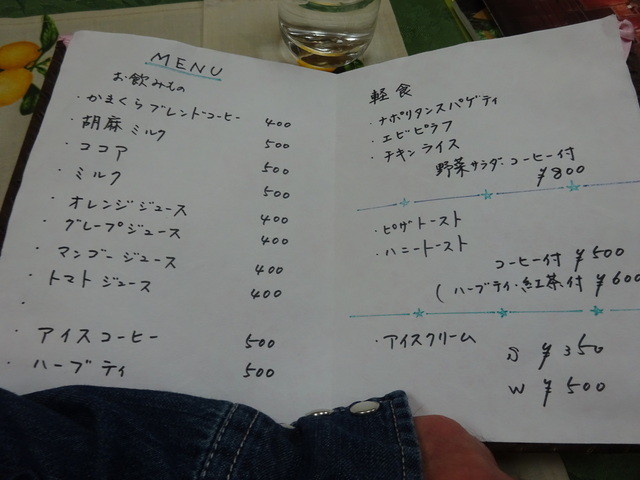 MENU
お飲みもの
・かまくらブレンドコーヒー 400
・胡麻ミルク 500
・ココア 500
・ミルク 500
・オレンジジュース 400
・グレープジュース 400
・マンゴージュース 400
・トマトジュース 400
・
・アイスコーヒー 500
・ハーブティ 500
軽食
・ナポリタンスパゲティ
・エビピラフ
・チキンライス
野菜サラダ・コーヒー付
¥800
・ピザトースト
・ハニートースト
コーヒー付 ¥500
(ハーブティ・紅茶付 ¥600
・アイスクリーム
S ¥350
W ¥500